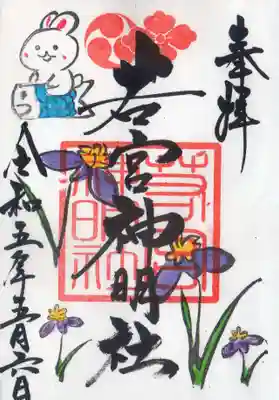 奉拝
若宮神明社
令和五年五月六日